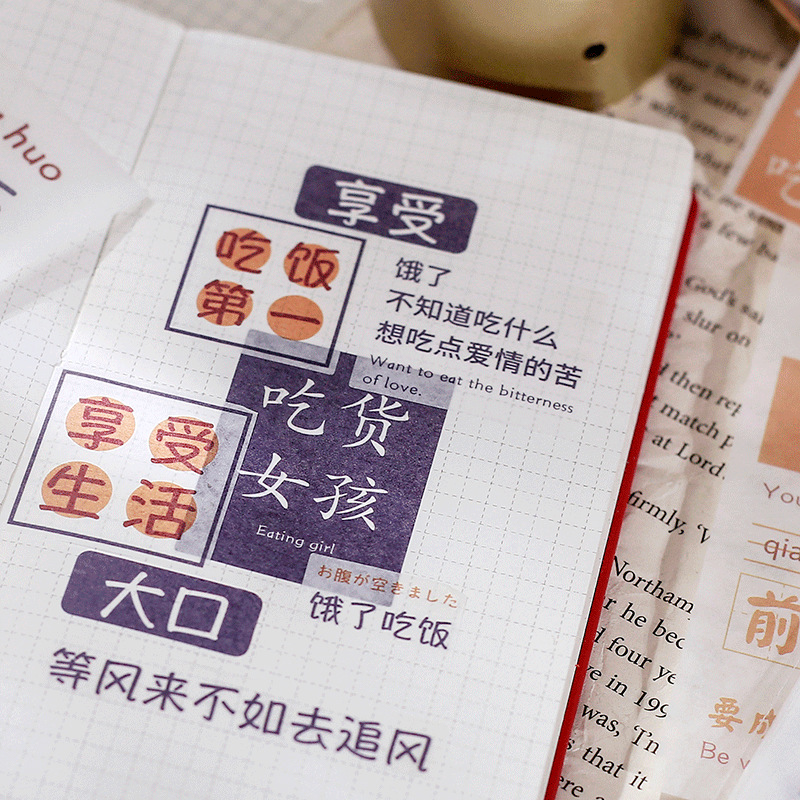 huo
享受
吃饭
第一
饿了
不知道吃什么
想吃点爱情的苦
Want to eat the bitterness
of love.
享受
生活
吃货
女孩
Eating girl
お腹が空きました
饿了吃饭
大口
等风来不如去追风
吃
God's
slur on
then rep
match
at Lord.
firmly,
Northam
r he bec
four ye
in 199
was,
s that it
You
qia
前
要
Be